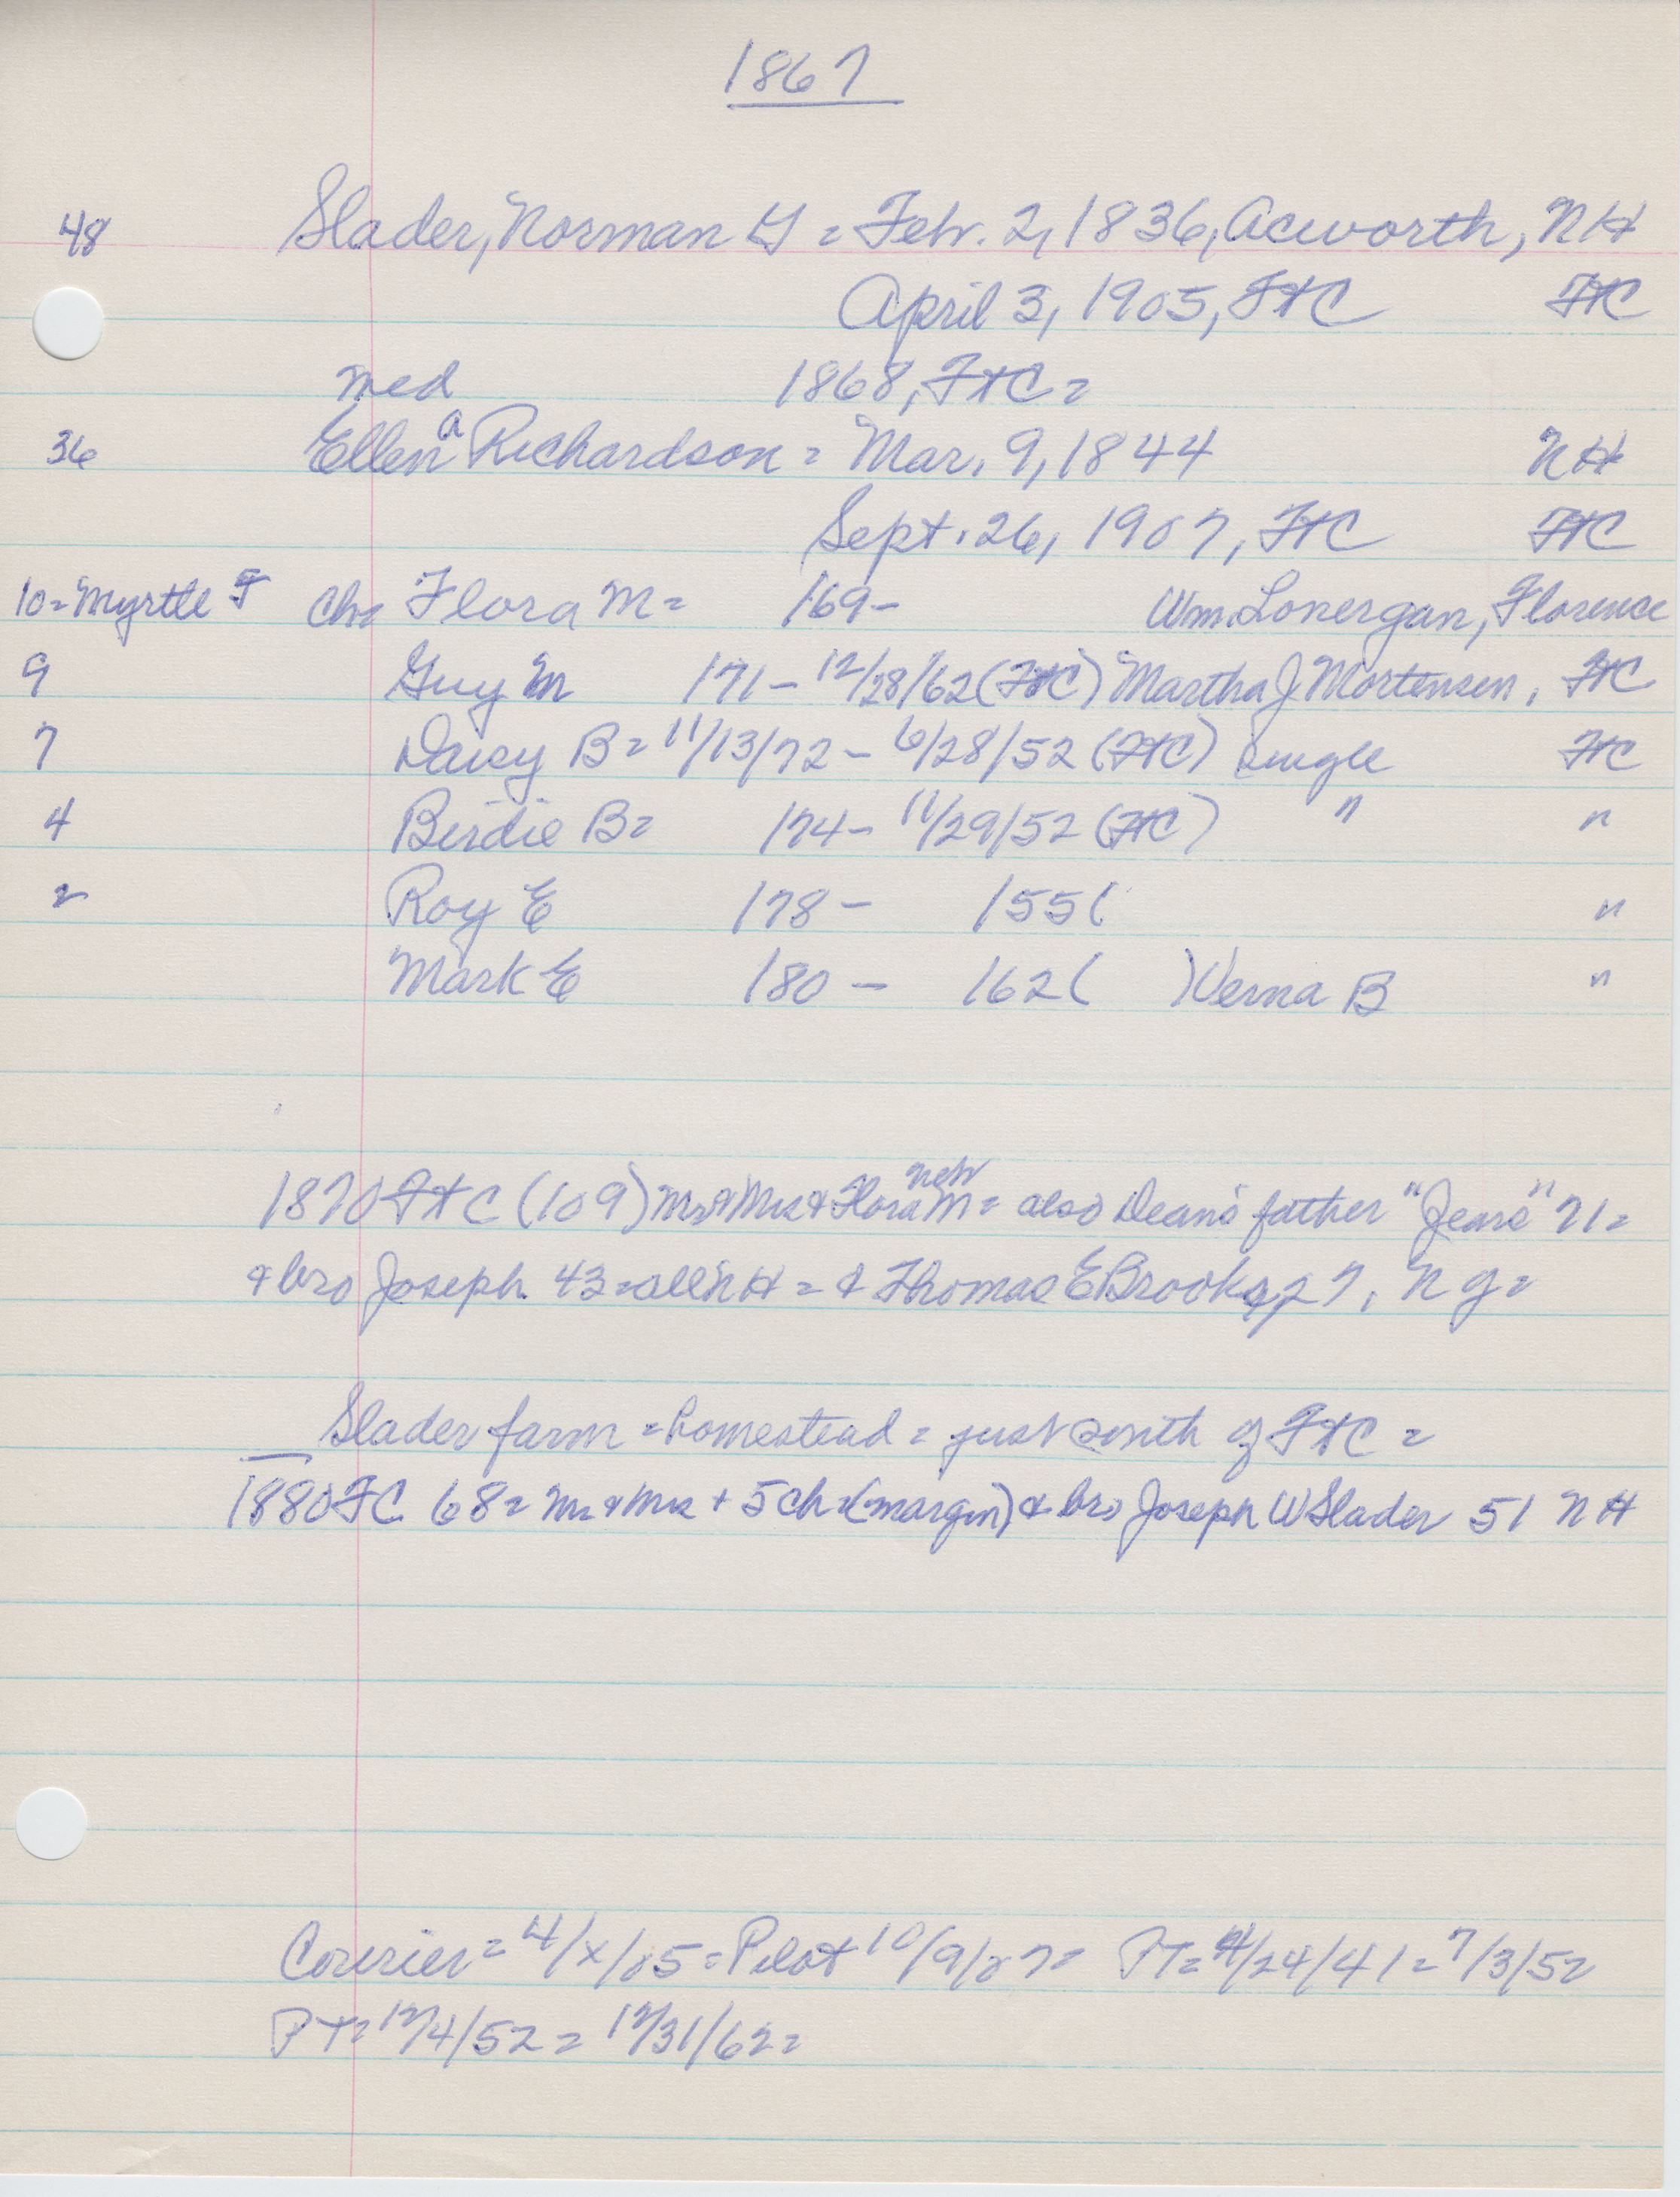 1867
48 Slader, Norman G = Feb. 2, 1836, Acworth, NH
April 3, 1905, FtC FtC
med 1868, FtC =
36 Ellen a Richardson = Mar. 9, 1844 NH
Sept. 26, 1907, FtC FtC
10 = Myrtle F Ch = Flora M = /69 - Wm Lonergan, Florence
9 Guy M /71 - 12/28/62 (FtC) Martha J Mortensen, FtC
7 Daisy B = 11/13/72 - 6/28/52 (FtC) single FtC
4 Birdie B = /74 - 11/29/52 (FtC) " "
2 Roy E /78 - /55 ( "
Mark E /80 - /62 ( ) Verna B "
1870 FtC (109) Mr & Mrs & Flora M = neb also Dean's father "Jears" 71 =
& bro Joseph 43 = all NH = & Thomas E Brooks, 27, N Y =
Slader farm = homestead = just south of FtC =
1880 FC 68 = Mr & Mrs + 5 ch = (margin) & bro Joseph W Slader 51 NH
Courier = 4/x/05 = Pilot 10/9/07 = PT = 4/24/41 = 7/3/52
PT = 12/4/52 = 12/31/62 =